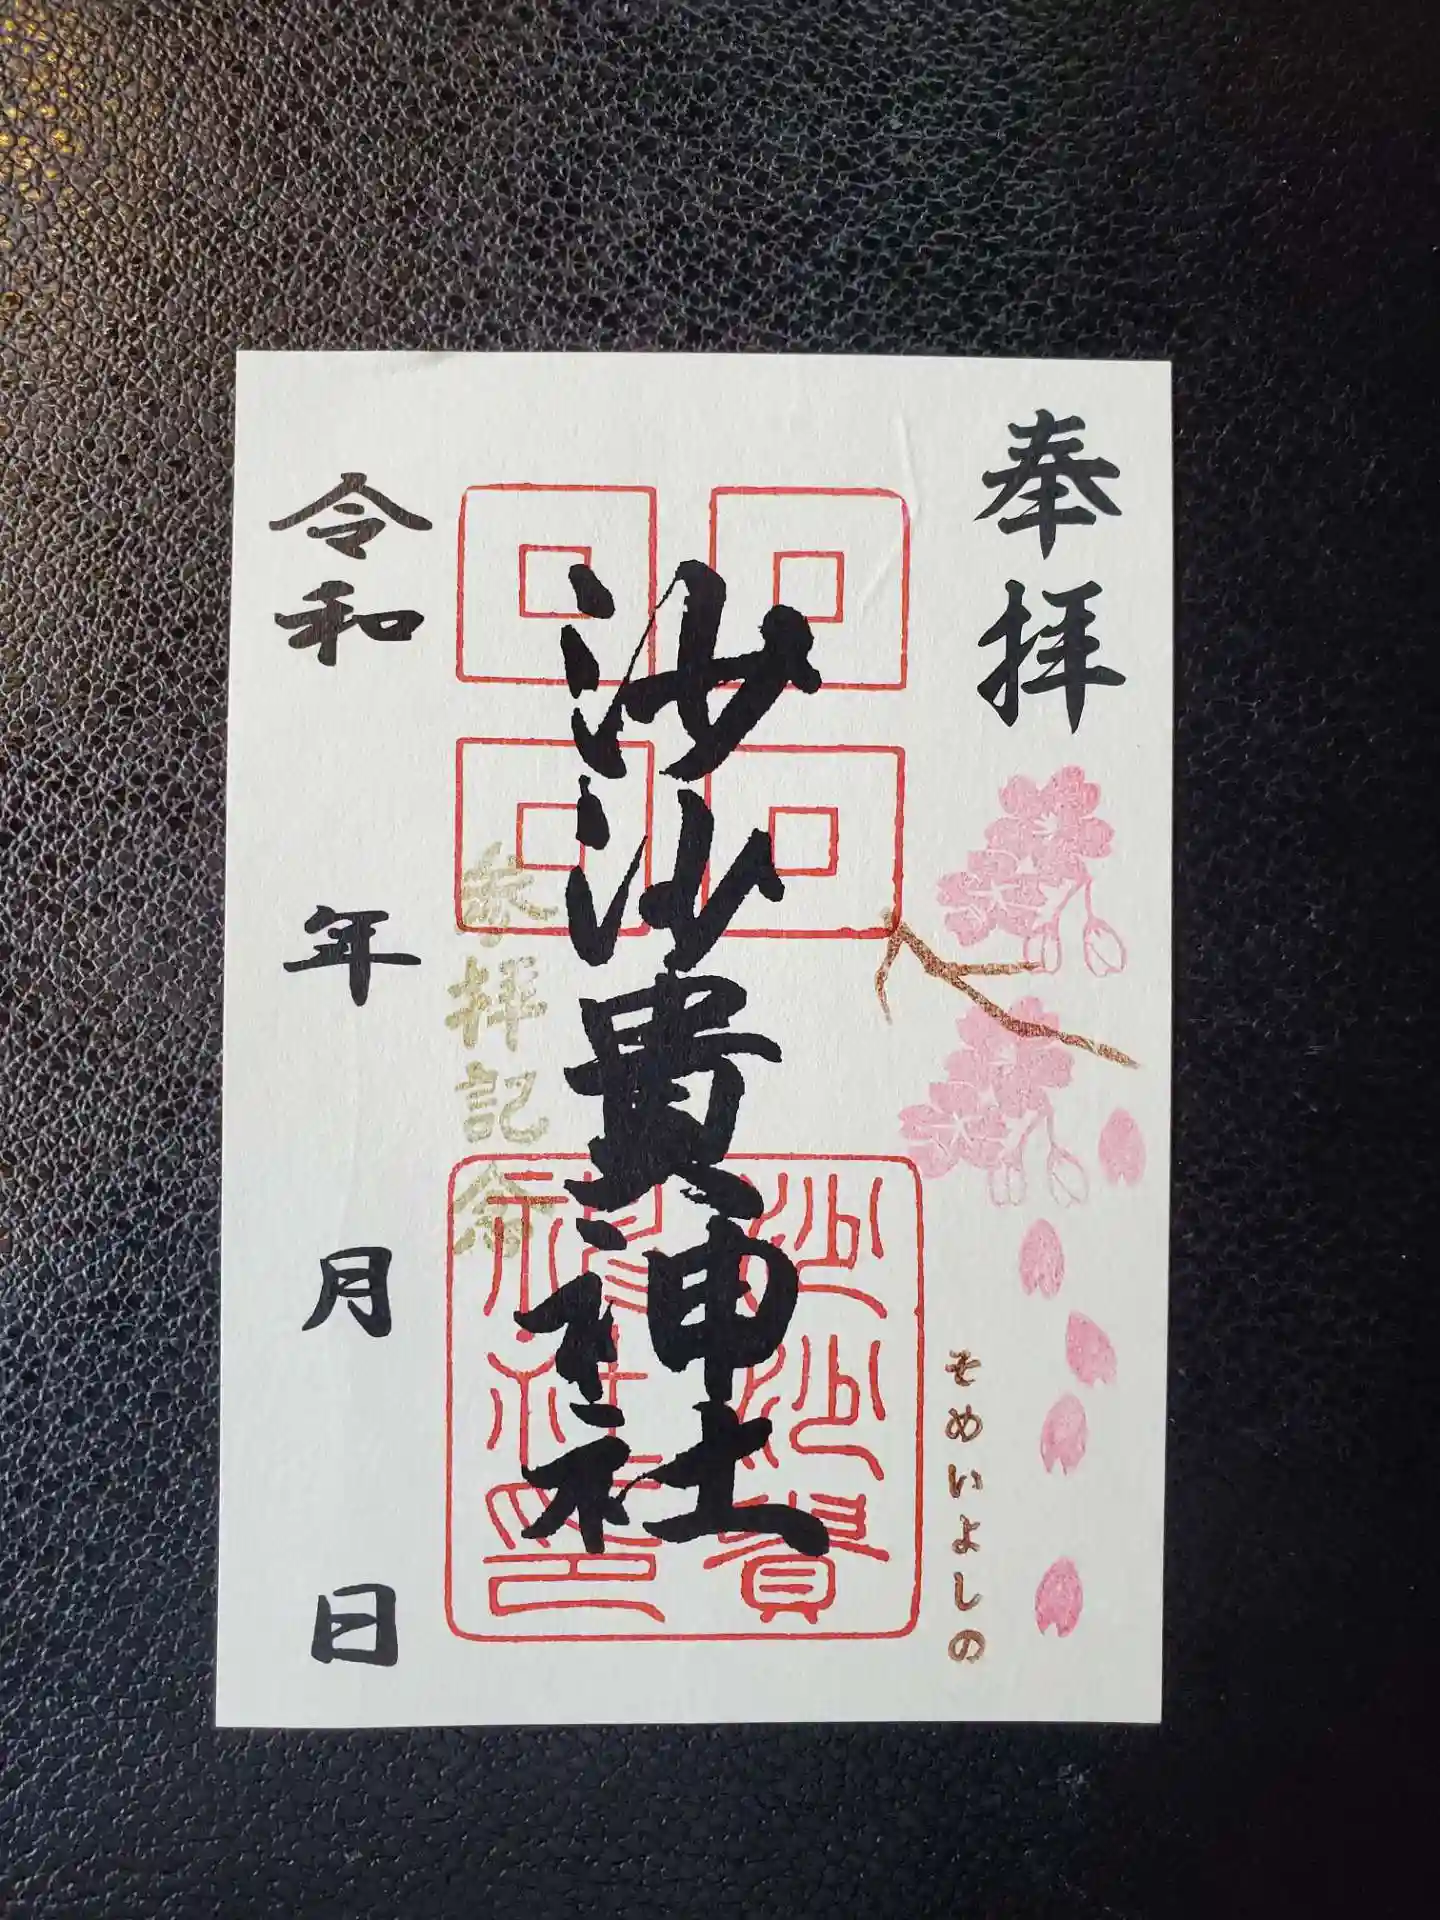 奉拝
そめいよしの
沙沙貴神社
沙沙貴
神社印
参拝記念
令和 年 月 日